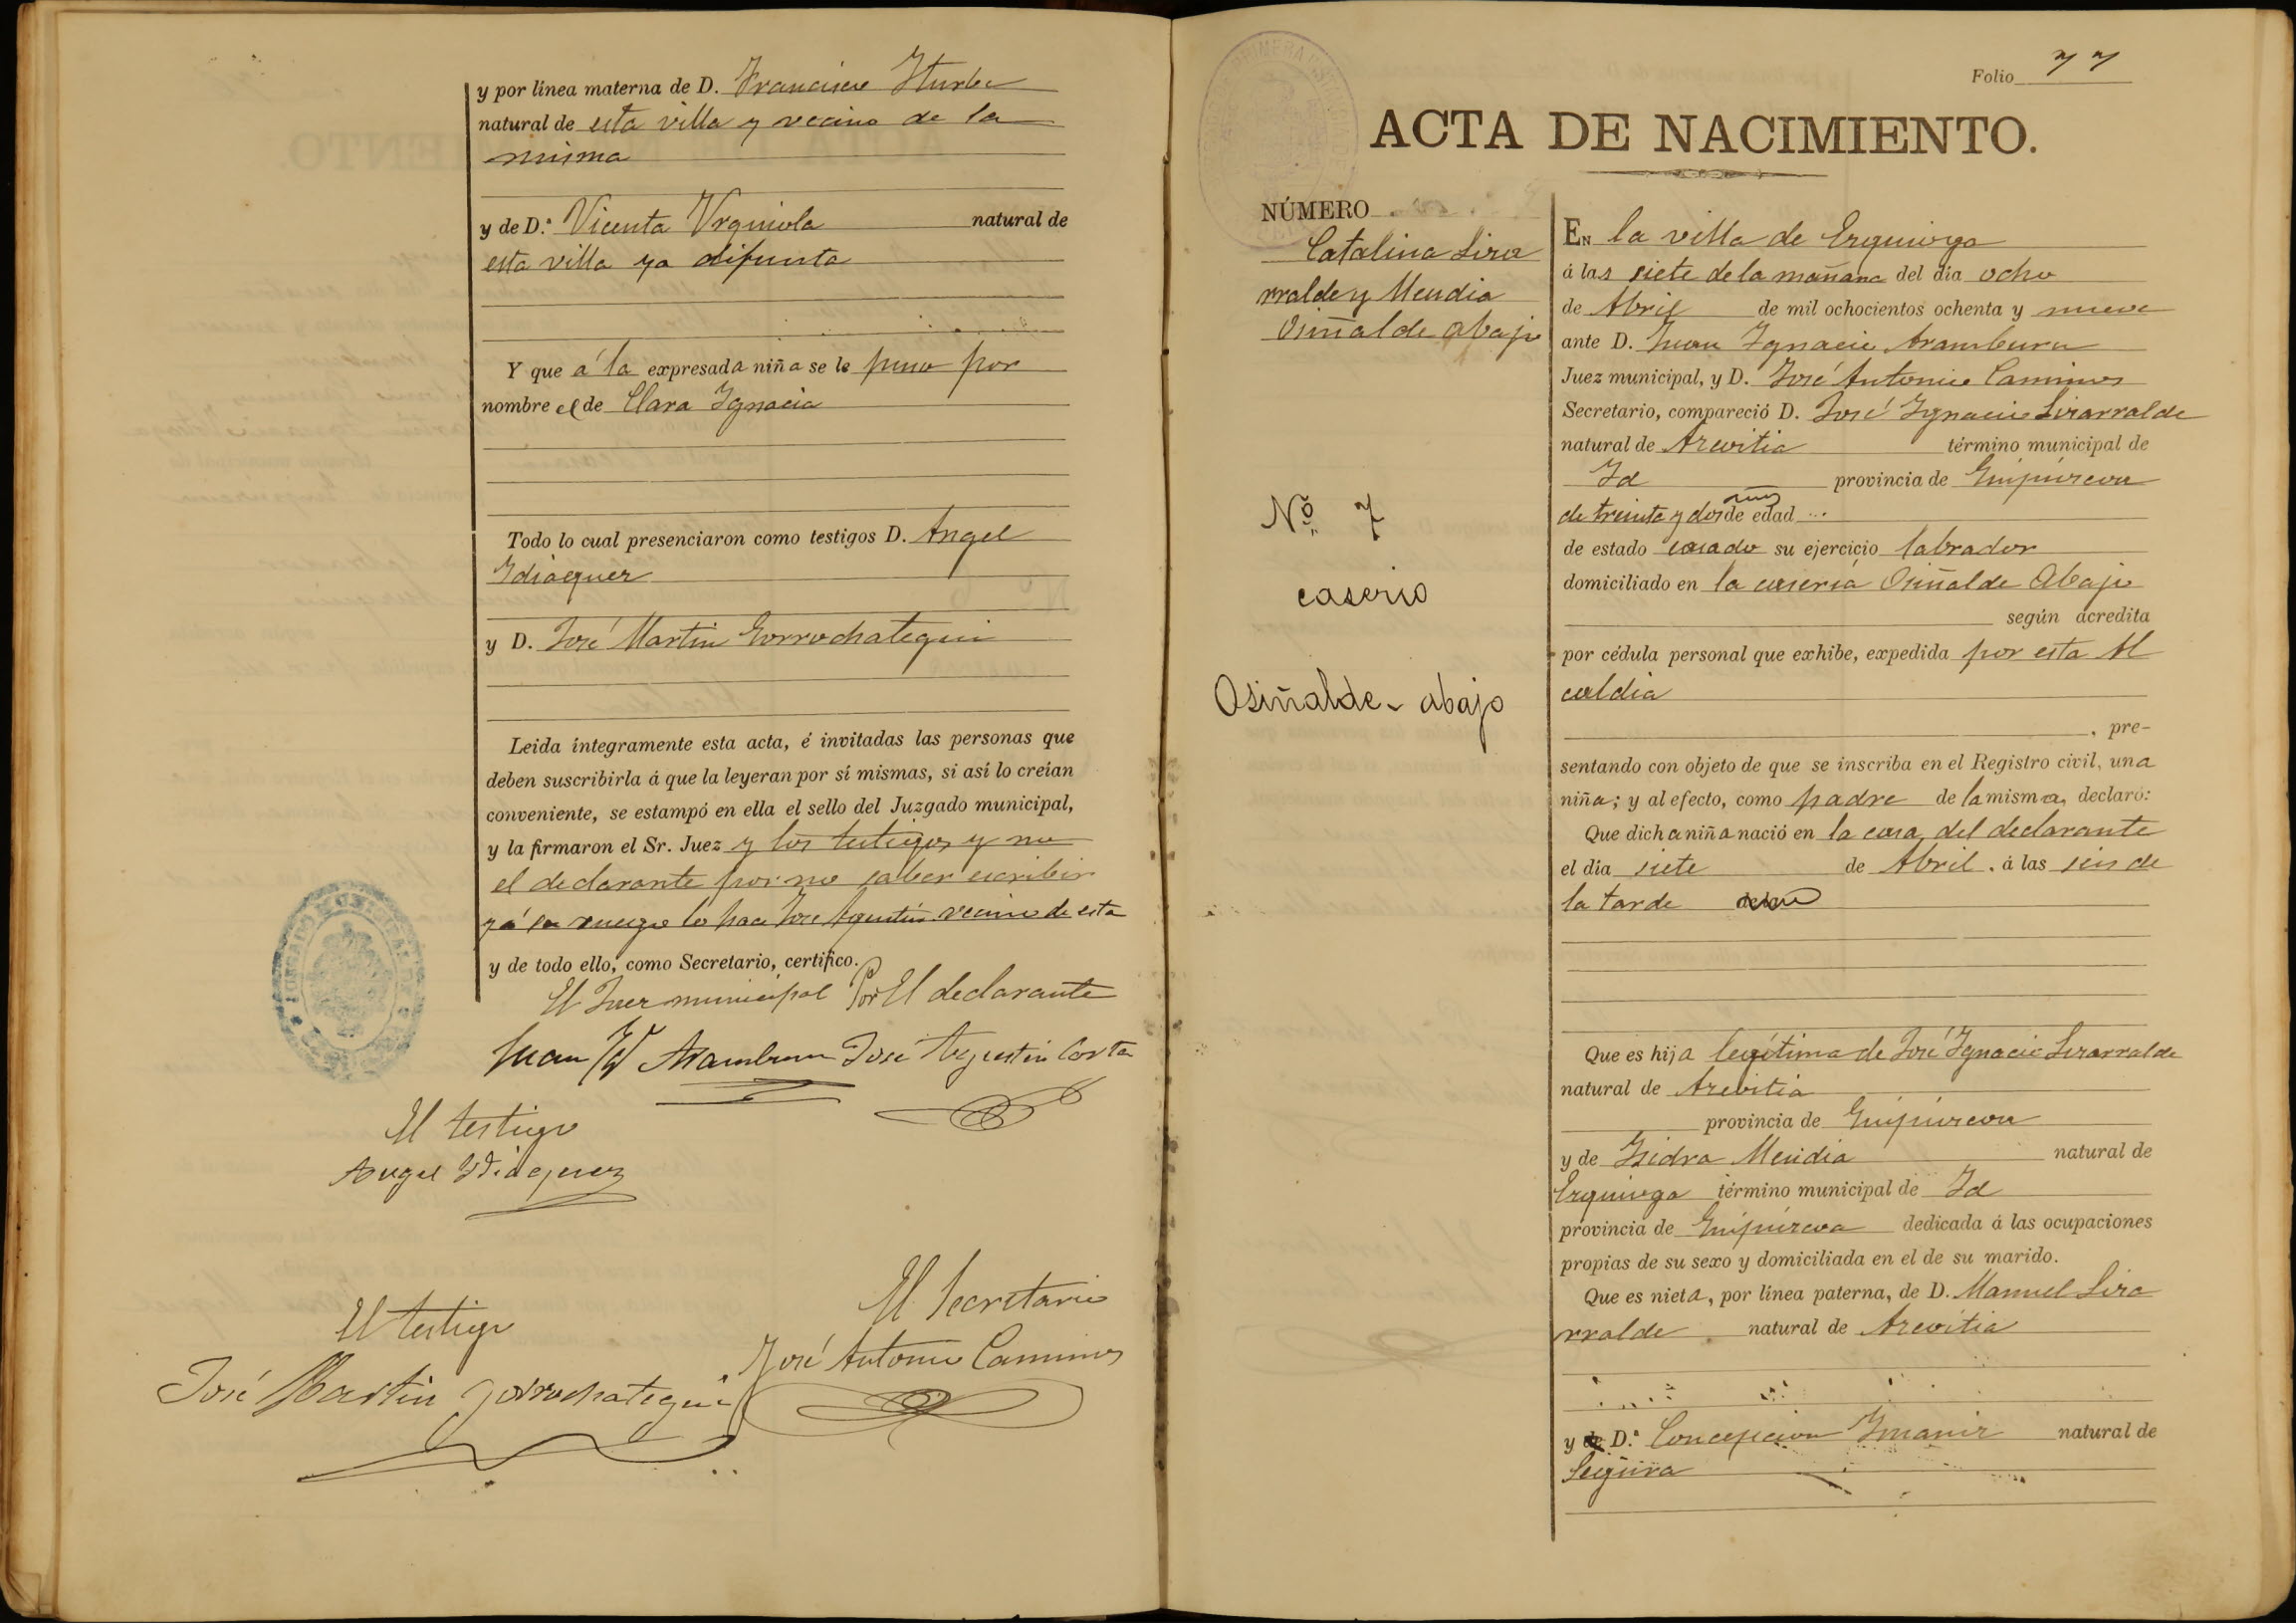 y por línea materna de D. Francisco Yturbe
natural de esta villa y vecino de la
misma
y de D.ª Vicenta Urquiola natural de
esta villa ya difunta
Y que á la expresada niña se le puso por
nombre el de Clara Ygnacia
Todo lo cual presenciaron como testigos D. Angel
Ydiaquez
y D. José Martin Gorrochategui
Leida íntegramente esta acta, é invitadas las personas que
deben suscribirla á que la leyeran por sí mismas, si así lo creían
conveniente, se estampó en ella el sello del Juzgado municipal,
y la firmaron el Sr. Juez y los testigos y no
el declarante por no saber escribir
y á su ruego lo hace José Agustin vecino de esta
y de todo ello, como Secretario, certifico.
El Juez municipal Por El declarante
Juan Ygº Aramburu José Agustin Corta
El testigo
Angel Ydiaquez
El Secretario
El testigo
José Antonio Caminos
José Martin Gorrochategui
Folio 77
ACTA DE NACIMIENTO.
NÚMERO
Catalina Liza
rralde y Mendia
Osiñalde abajo
Nº 7
caserio
Osiñalde-abajo
EN la villa de Ezquioga
á las siete de la mañana del día ocho
de Abril de mil ochocientos ochenta y nueve
ante D. Juan Ygnacio Aramburu
Juez municipal, y D. José Antonio Caminos
Secretario, compareció D. José Ygnacio Lizarralde
natural de Azcoitia término municipal de
Yd provincia de Guipúzcoa
años
de treinta y dos de edad
de estado casado su ejercicio labrador
domiciliado en la casería Osiñalde Abajo
según acredita
por cédula personal que exhibe, expedida por esta Al
caldia
, pre-
sentando con objeto de que se inscriba en el Registro civil, una
niña; y al efecto, como padre de la misma, declaró:
Que dicha niña nació en la casa del declarante
el día siete de Abril. á las seis de
la tarde
Que es hija legítima de José Ygnacio Lizarralde
natural de Azcoitia
provincia de Guipúzcoa
y de Ysidra Mendia natural de
Ezquioga término municipal de Yd
provincia de Guipúzcoa dedicada á las ocupaciones
propias de su sexo y domiciliada en el de su marido.
Que es nieta, por línea paterna, de D. Manuel Liza
rralde natural de Azcoitia
y de D.ª Concepcion Ymaniz natural de
Segura